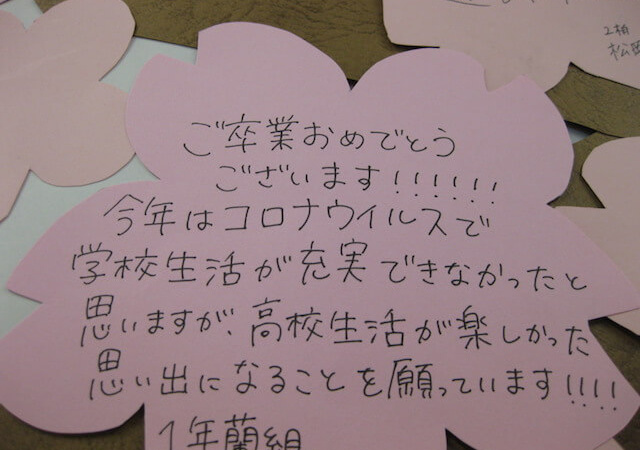 ご卒業おめでとう
ございます！！！！！！
今年はコロナウイルスで
学校生活が充実できなかったと
思いますが、高校生活が楽しかった
思い出になることを願っています！！！！
1年蘭組
2柏
松岡